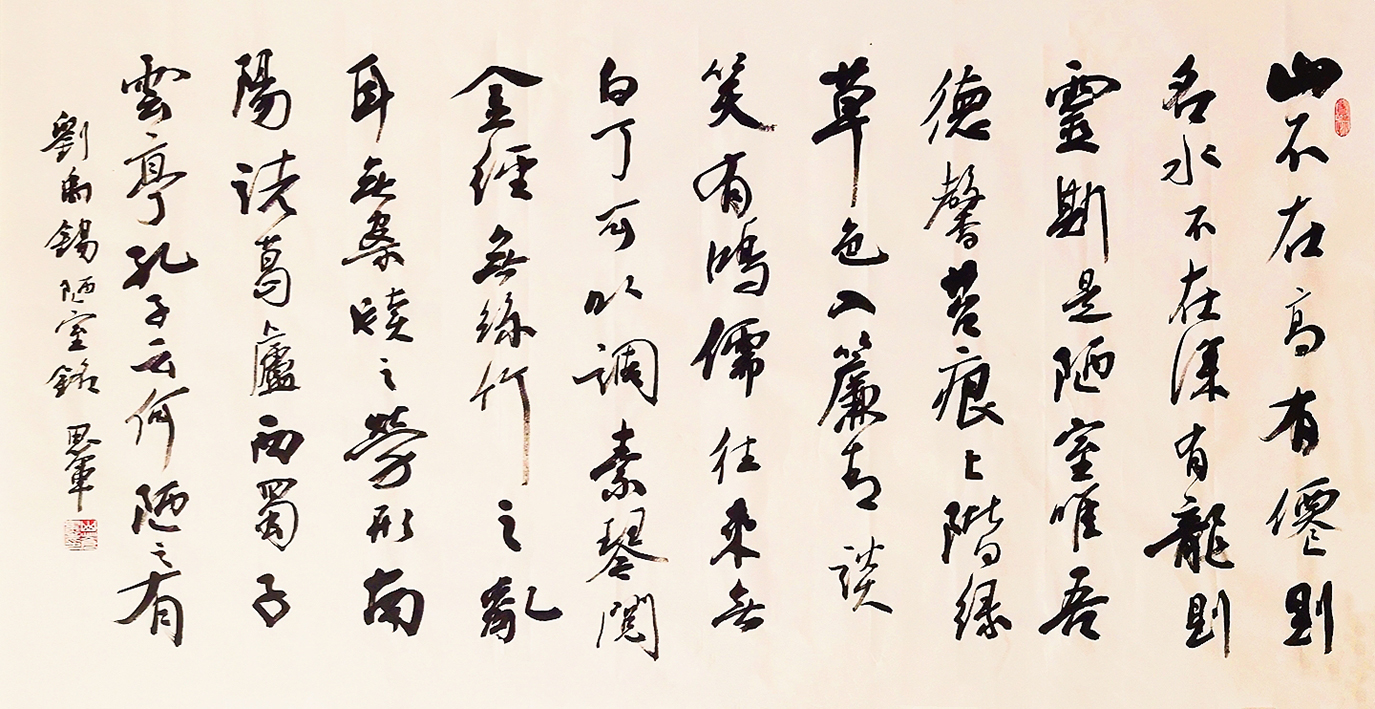 山不在高有僊則
名水不在深有龍則
靈斯是陋室唯吾
德馨苔痕上階緑
草色入簾青談
笑有鴻儒往來無
白丁可以調素琴閱
金經無絲竹之亂
耳無案牘之勞形南
陽諸葛廬西蜀子
雲亭孔子云何陋之有
劉禹錫陋室銘 思軍